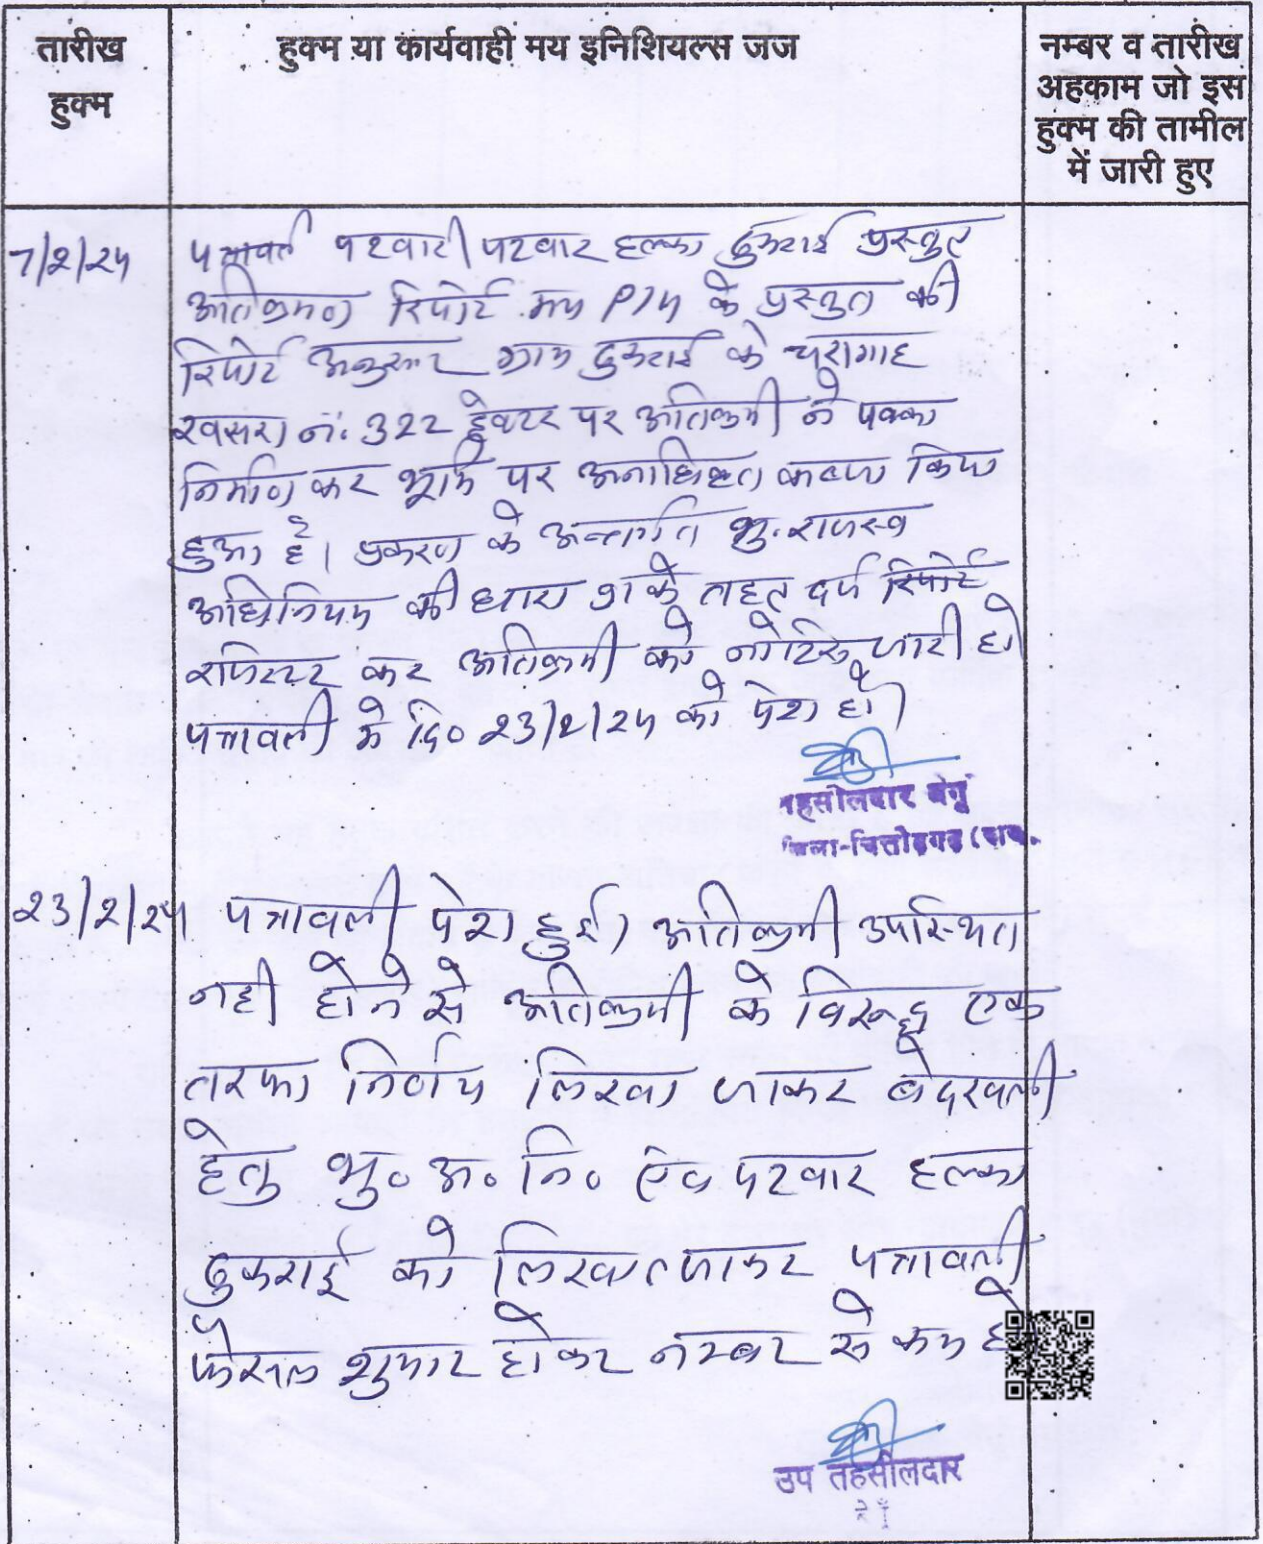 तारीख
हुक्म
हुक्म या कार्यवाही मय इनिशियल्स जज
नम्बर व तारीख
अहकाम जो इस
हुक्म की तामील
में जारी हुए
7/2/24 पत्रावली पटवारी पटवार हल्का ढुकराई प्रस्तुत
अतिक्रमण रिपोर्ट मय P14 के प्रस्तुत की
रिपोर्ट अनुसार ग्राम ढुकराई के चरागाह
खसरा नं. 322 हैक्टर पर अतिक्रमी ने पक्का
निर्माण कर भूमि पर अनाधिकृत कब्जा किया
हुआ है। प्रकरण के अन्तर्गत भु.राजस्व
अधिनियम की धारा 91 के तहत दर्ज रिपोर्ट
रजिस्टर कर अतिक्रमी को नोटिस जारी हो
पत्रावली मे दि० 23/2/24 को पेश हो।
तहसीलदार बेगूं
जिला-चित्तोड़गढ़ (राज.
23/2/24 पत्रावली पेश हुई। अतिक्रमी उपस्थित
नही होने से अतिक्रमी के विरूद्ध एक
तरफा निर्णय लिखा जाकर बेदखली
हेतु भु० अ० नि० एंव पटवार हल्का
ढुकराई को लिखा जाकर पत्रावली
फैसल शुमार होकर नम्बर से कम हो
उप तहसीलदार